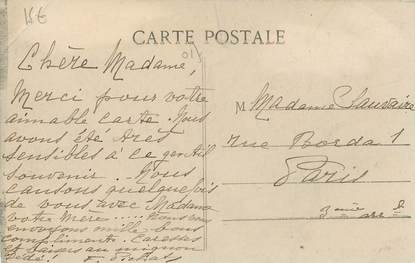 CARTE POSTALE
Chère Madame,
Merci pour votre
aimable carte. Nous
avons été très
sensibles à ce gentil
souvenir. Nous
causons quelquefois
de vous avec Madame
votre Mère..... Nous vous
envoyons mille bons
compliments. Caresses
et baisers au mignon
M Madame
rue Borda 1
Paris
3ème arr.